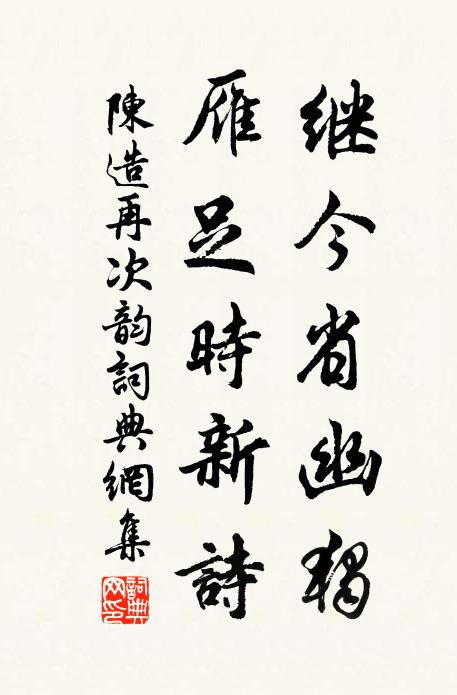 继今省幽独
雁足時新詩
陳造再次韵詞典網集
詞典網印